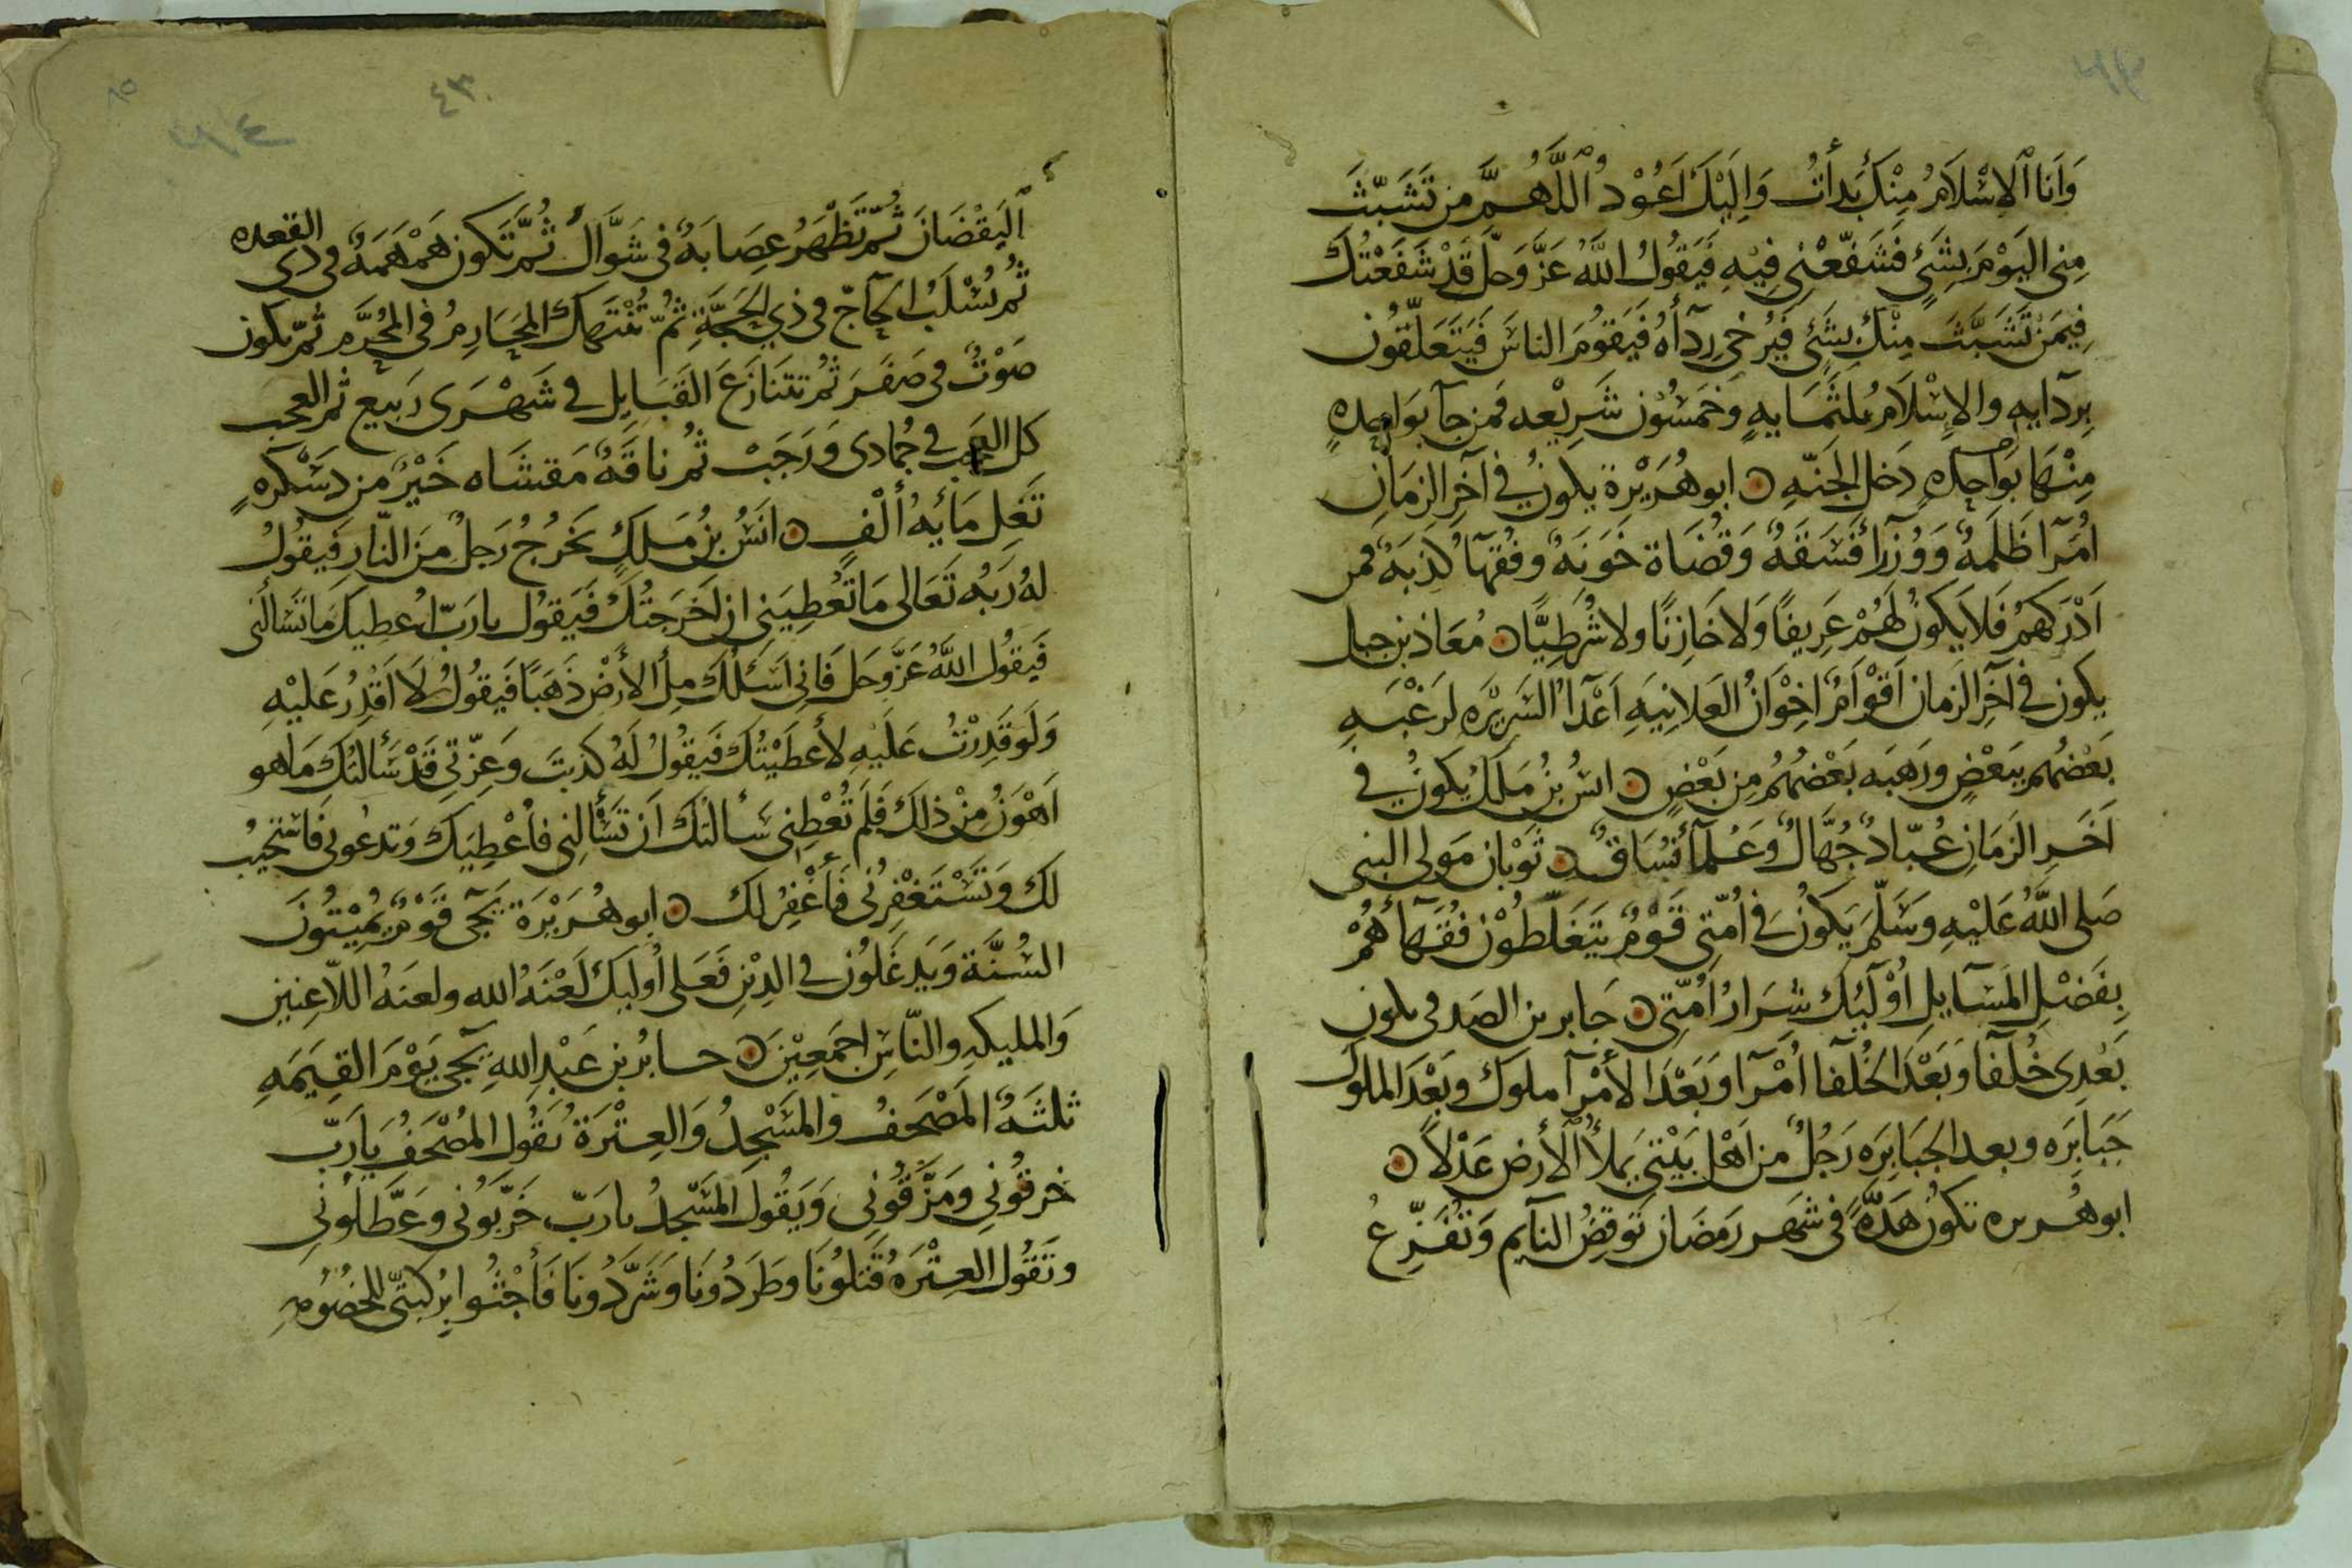 وَاَنَا الْاِسْلَامُ مِنْكَ بَدأتُ وَاِلَيْكَ اَعُوْدُ اللَّهُمَّ مَن تَشَبَّثَ
مِنِي اليَوْمَ بِشَيْءٍ فَشَفّعْنِي فِيْهِ فَيَقُولُ اللّٰهُ عَزَّ وَجلّ قَدْ شَفَّعْتُكَ
فِيْمَنْ تَشَبَّثَ مِنْكَ بِشَيْءٍ فَيُرْخي رِدآأَهُ فَيَقُومُ الناسُ فَيَتَعَلَّقُون
بِردَآيِهِ والاِسْلَامُ ثلثمَايةٍ وَخَمْسُون شَرِيْعه فمن جآ بوَاحِدهٍ
مِنْهَا بِوَاحِدهٍ دَخل الجَنّهِ ابو هُرَيْرة يكونُ في آخِرِ الزمَانِ
اُمَرآ ظَلَمةٌ وَوُزَرآءُ فَسَقَهٌ وَقُضَاة خَوَنَهٌ وفُقهآ كَذبَهٌ فمن
اَدْرَكَهُمْ فَلا يَكُونُ لَهُمْ عَرِيفًا وَلا خَازِنًا ولا شُرَطِيًّا مُعَاذ بن جبل
يكون في آخِرِ الزمَان اَقْوَامٌ اِخْوَانُ العَلانِيَهِ اَعْدآءُ السَرِيْرَهِ لرَغْبَهِ
بَعْضُهُم بِبَعْضٍ ورَهبَه بَعْضُهُمُ مِن بَعْضٍ انسُ بْنُ مَلِك يكونُ في
آخَرِ الزمَانِ عُبّادٌ جُهَّالٌ وَعُلمآءُ فُسَّاقٌ ثَوْبان مَولى النبى
صَلى اللّٰهُ عَلَيْهِ وَسَلّمَ يَكُونُ فِي اُمَّتِي قَوْمٌ يَتَغَلّطُوْن فُقَهآءُهُمْ
بِفَضْلِ المَسَآيِل اُوْلَيِكَ شِرَارُ اُمَّتِي جَابر بن الصدفى يكون
بَعْدِى خُلَفآ وَبَعْدَ الخُلَفآ اُمَرآ وَبَعْدَ الأُمَرآ ملوك وبَعْدَ الملوك
جَبَابِرَه وبعد الجَبَابِرَه رَجُلٌ من اَهْلِ بَيْتِي يَملأُ الأرض عَدْلًا
ابو هُريره تكونُ هَدَّهٌ في شهر رَمضَان تُوقِضُ النآيم وَتُفَزِّعُ
اليَقْضَانَ ثُمّ تَظْهَرُ عِصَابَهٌ في شَوَّال ثُمّ تَكون هَمْهَمَةٌ في ذي القعده
ثُم يُسْلَبُ الحَآجّ في ذي الحجَّةِ ثُمّ تُنْتَهَكُ المحَارِمُ في المُحَرَّم ثمّ يكون
صَوْتٌ في صَفَرَ ثُم تتنَازَعَ القَبَايِل في شَهْرَى رَبيع ثم العجب
كل العجب في جُمادى وَرَجَبْ ثُم ناقَهٌ مَقتَبَاه خَيْرٌ من دَسْكَرهٍ
تَغِل مَائَهُ أَلْفٍ انَسُ بْنُ مَلكٍ يَخرُجُ رَجلٌ مِنَ النّار فَيقُولُ
لهُ رَبُه تَعَالى مَا تُعْطِيَنى ان اَخْرَجتُكَ فَيَقوُل يا رَبّ اُعطِيكَ مَا تسَالَنى
فَيقُول اللّٰهُ عَزَّ وجَلَ فَانِي اَسْئلُكَ مِلْأ الأرضِ ذهَبًا فَيقُولُ لا اَقدِرُ عَليْهِ
وَلو قَدِرْتُ عَليْهِ لأعطَيْتُكَ فَيقُولُ لَهُ كذبتَ وَعِزّتِي قَدْ سَألتكَ مَا هو
اَهْوَنُ مِنْ ذلكَ فَلَم تُعْطِنِي سَألتكَ اَن تسْأَلنِي فاُعْطِيَكَ وَتدعُوني فَاسْتَجيبُ
لك وَتَسْتَغْفِرُني فَأَغْفِرُ لك ابو هُرَيْرَة يَجئ قَوْمٌ يُمِيْتُونَ
السُنَّة وَيَدغَلُونَ في الدِيْنِ فَعَلى اُولَيِكَ لَعْنَهُ الله ولعنَهُ اللاّعِنِيْن
وَالمليكهِ والنّاسِ اجمَعِيْن جابُر بن عَبْدِ اللهِ يَجئ يَوْمَ القِيَمَهِ
ثلثَهٌ المُصْحَفُ والمَسْجِدُ وَالعِتْرَةُ يَقُول المُصْحَفُ يَا رَبّ
خرقُوني ومَزَّقُوني وَيَقُول المَسْجدُ يا رَبّ خَرَّبُونى وَعَطّلُونِي
وَتَقُول العِتْرَهُ قَتَلُونَا وطَرَدُونَا وَشَرَّدُونَا فَأَجْثُوا بِرُكبَتَيّ للخصُومهِ